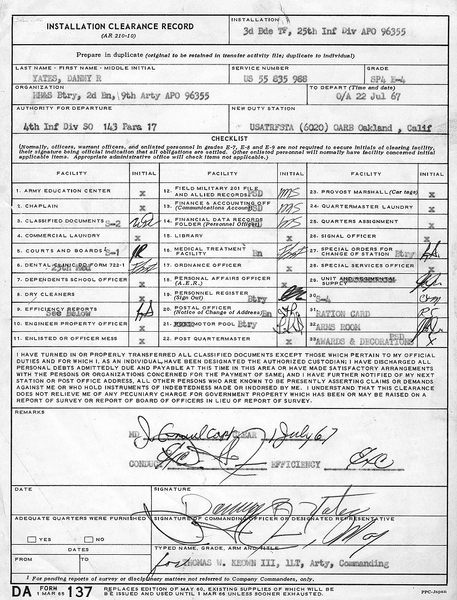 INSTALLATION CLEARANCE RECORD
(AR 210-10)
INSTALLATION
3d Bde TF, 25th Inf Div APO 96355
Prepare in duplicate (original to be retained in transfer activity file; duplicate to individual)
LAST NAME - FIRST NAME - MIDDLE INITIAL
YATES, DANNY R
SERVICE NUMBER
US 55 835 988
GRADE
SP4 E-4
ORGANIZATION
HHAS Btry, 2d Bn, 9th Arty APO 96355
TO DEPART (Time and date)
O/A 22 Jul 67
AUTHORITY FOR DEPARTURE
4th Inf Div SO 143 Para 17
NEW DUTY STATION
USATRFSTA (6020) OARB Oakland, Calif
CHECKLIST
(Normally, officers, warrant officers, and enlisted personnel in grades E-7, E-8 and E-9 are not required to secure initials of clearing facility, their signature being official indication that all obligations are settled. Other enlisted personnel will normally have facility concerned initial applicable items. Appropriate administrative office will check items not applicable.)
FACILITY INITIAL FACILITY INITIAL FACILITY INITIAL
1. ARMY EDUCATION CENTER x
2. CHAPLAIN x
3. CLASSIFIED DOCUMENTS S-2
4. COMMERCIAL LAUNDRY x
5. COURTS AND BOARDS S-1
6. DENTAL CLINIC DD FORM 722-1
25th Med
7. DEPENDENTS SCHOOL x
8. DRY CLEANERS x
9. EFFICIENCY REPORTS
See Below
10. ENGINEER PROPERTY OFFICER x
11. ENLISTED OR OFFICER MESS x
12. FIELD MILITARY 201 FILE AND ALLIED RECORDS PSD
13. FINANCE & ACCOUNTING OFF (Communications Accounts) PSD
14. FINANCIAL DATA RECORDS FOLDER (Personnel Officer)
15. LIBRARY x
16. MEDICAL TREATMENT FACILITY Bn
17. ORDNANCE OFFICER x
18. PERSONAL AFFAIRS OFFICER (A.E.R.) x
19. PERSONNEL REGISTER (Sign Out) Btry
20. POSTAL OFFICER (Notice of Change of Address) Bn
21. MOTOR POOL Btry
22. POST QUARTERMASTER x
23. PROVOST MARSHALL (Car tags) x
24. QUARTERMASTER LAUNDRY x
25. QUARTERS ASSIGNMENT x
26. SIGNAL OFFICER x
27. SPECIAL ORDERS FOR CHANGE OF STATION Btry
28. SPECIAL SERVICES OFFICER x
29. UNIT SUPPLY
30. S-4
31. RATION CARD
32. ARMS ROOM
33. AWARDS & DECORATIONS PSD x
I HAVE TURNED IN OR PROPERLY TRANSFERRED ALL CLASSIFIED DOCUMENTS EXCEPT THOSE WHICH PERTAIN TO MY OFFICIAL DUTIES AND FOR WHICH I, AN INDIVIDUAL, HAVE BEEN DESIGNATED THE AUTHORIZED CUSTODIAN; I HAVE DISCHARGED ALL PERSONAL DEBTS ADMITTEDLY DUE AND PAYABLE AT THIS TIME IN THIS AREA OR HAVE MADE SATISFACTORY ARRANGEMENTS WITH THE PERSONS OR ORGANIZATIONS CONCERNED FOR THE PAYMENT OF SAME; AND I HAVE FURTHER NOTIFIED OF MY NEXT STATION OR POST OFFICE ADDRESS, ALL OTHER PERSONS WHO ARE KNOWN TO BE PRESENTLY ASSERTING CLAIMS OR DEMANDS AGAINST ME OR WHO HOLD INSTRUMENTS OF INDEBTEDNESS MADE OR INDORSED BY ME. I UNDERSTAND THAT THIS CLEARANCE DOES NOT RELIEVE ME OF ANY PECUNIARY CHARGE FOR GOVERNMENT PROPERTY WHICH HAS BEEN OR MAY BE RAISED ON A REPORT OF SURVEY OR REPORT OF BOARD OF OFFICERS IN LIEU OF REPORT OF SURVEY.
REMARKS
CLEAR 1 July 67
CONDUCT Exc EFFICIENCY Exc
DATE
SIGNATURE
Danny R Yates
ADEQUATE QUARTERS WERE FURNISHED
YES NO
SIGNATURE OF COMMANDING OFFICER OR DESIGNATED REPRESENTATIVE
DATES
FROM TO
TYPED NAME, GRADE, ARM AND TITLE
THOMAS W. KEOWN III, 1LT, Arty, Commanding
1 For pending reports of survey or disciplinary matters not referred to Company Commanders, only.
DA FORM 1 MAR 65 137
REPLACES EDITION OF MAY 60, EXISTING SUPPLIES OF WHICH WILL BE ISSUED AND USED UNTIL 1 MAR 66 UNLESS SOONER EXHAUSTED.
PPC-Japan